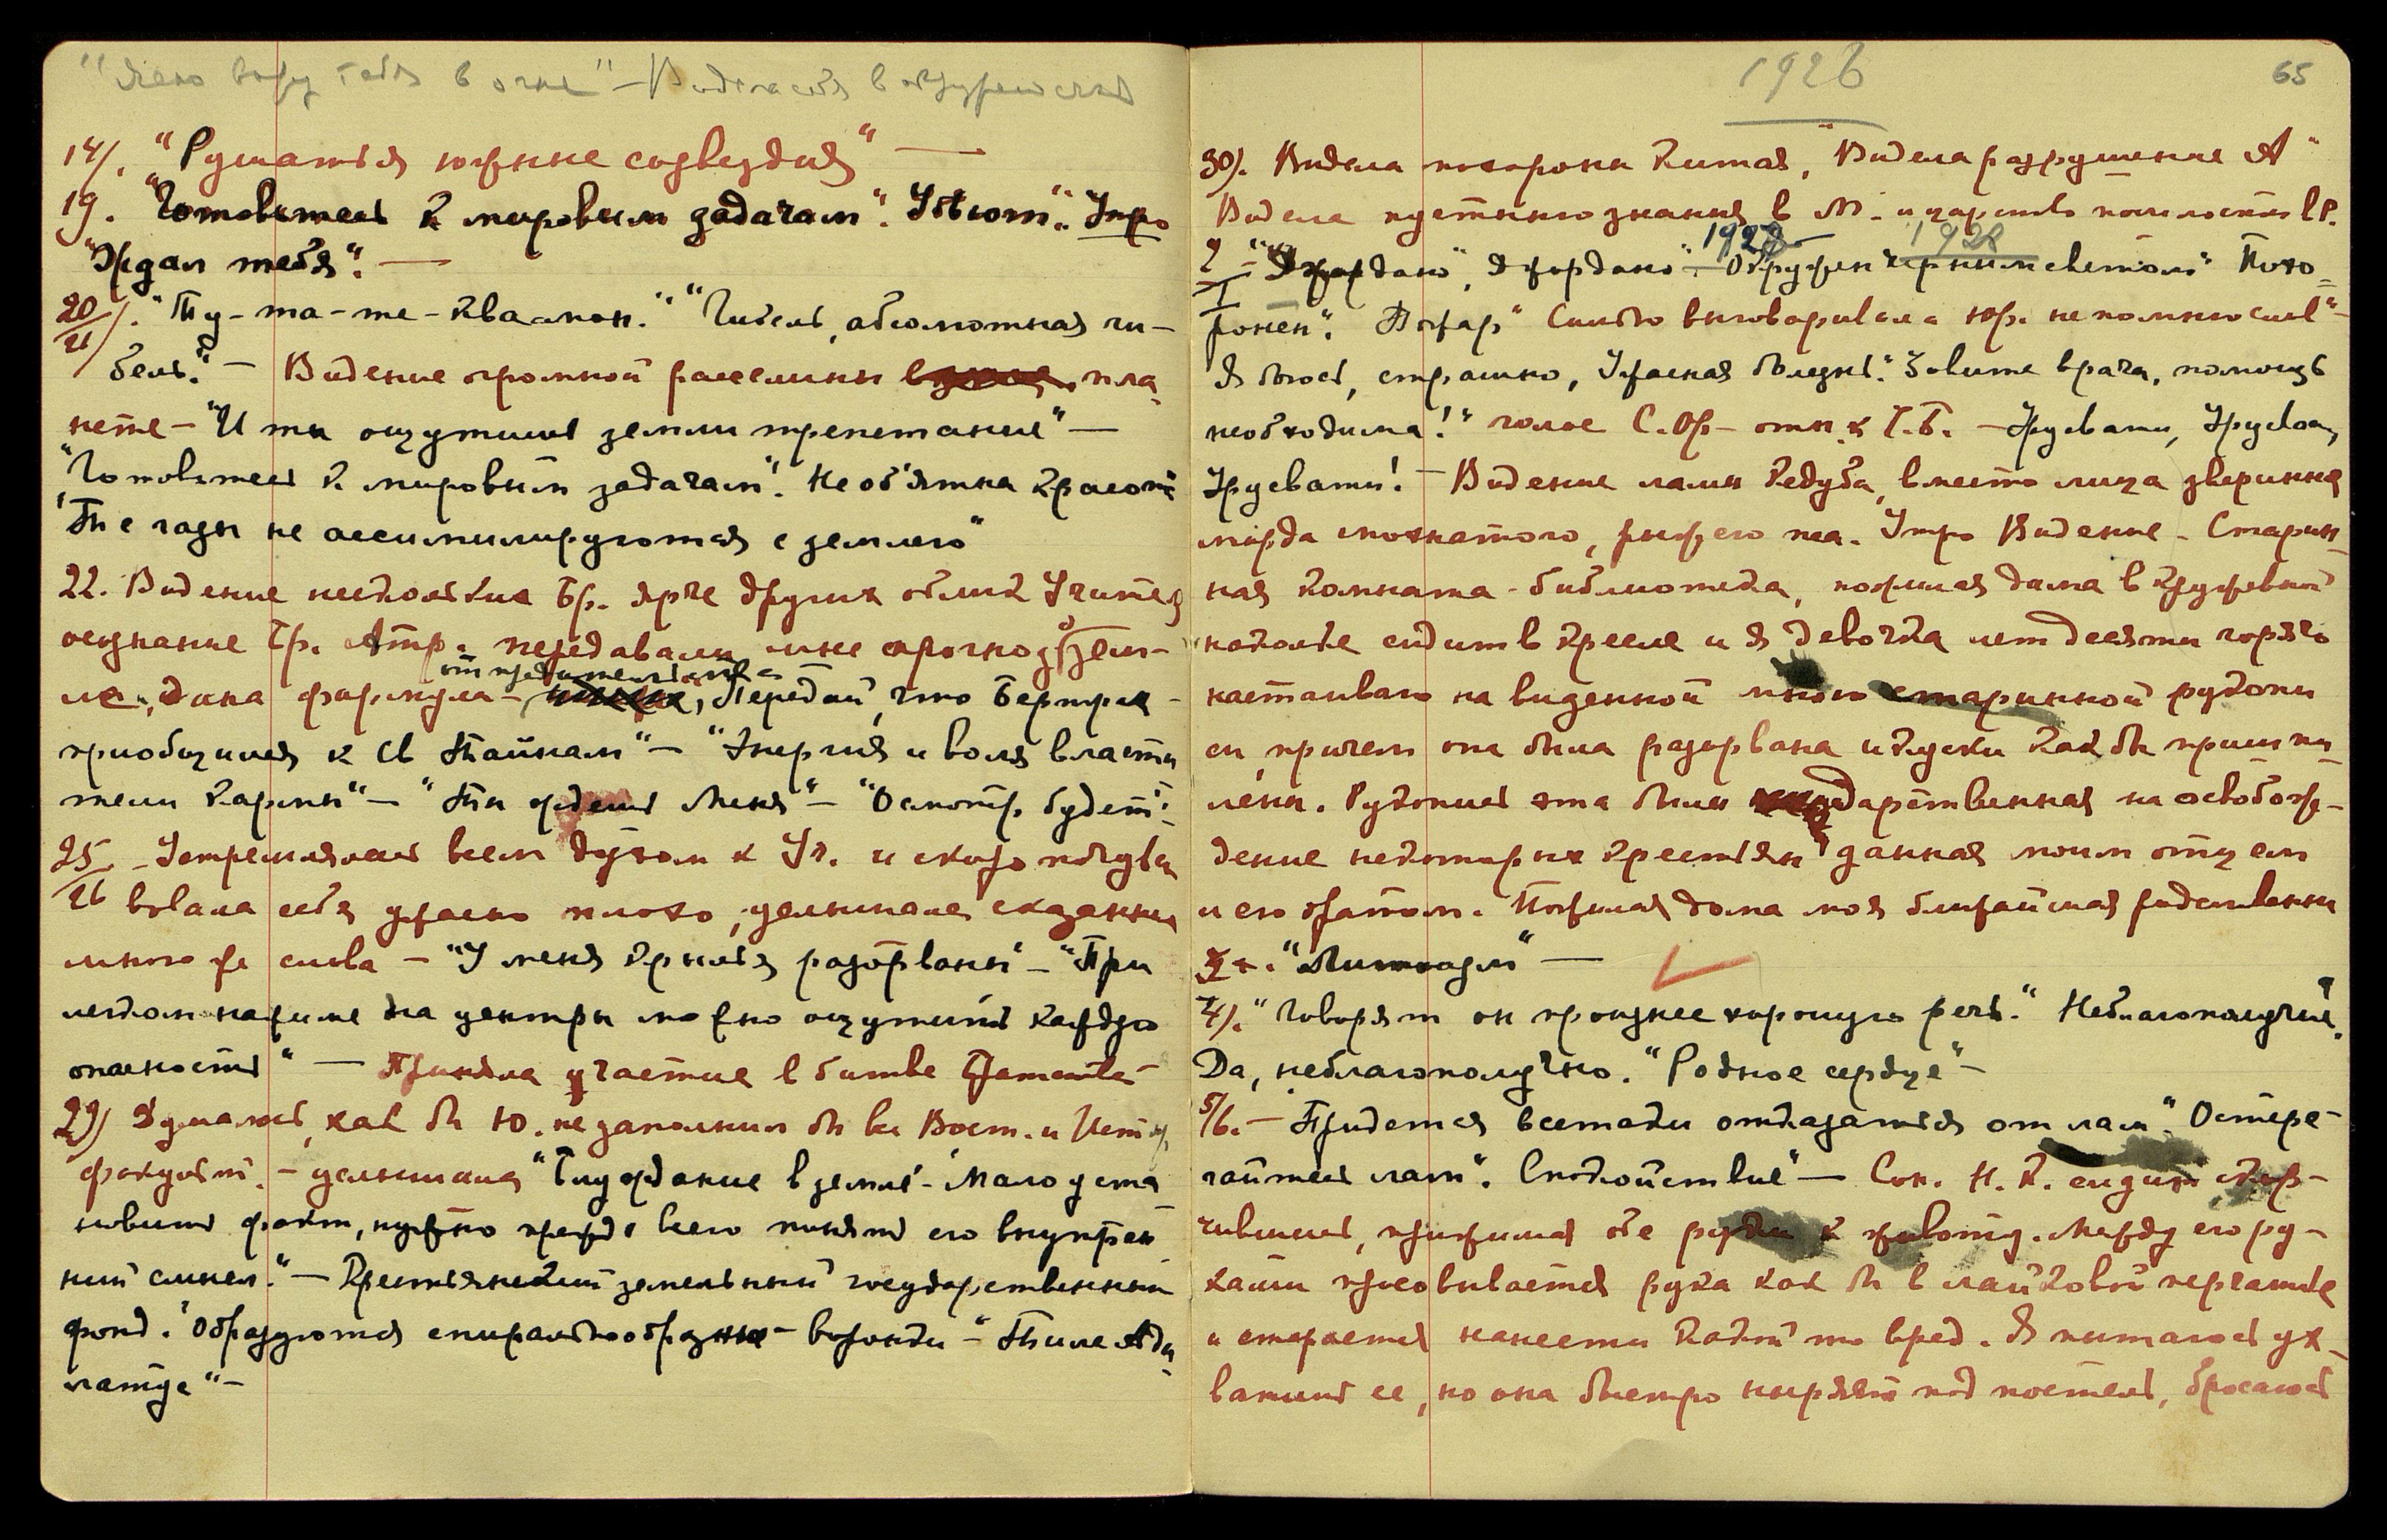 "Ясно вижу тебя в огне" —
14/. "Рушатся южные созвездия" —
19. "Готовьтесь к мировым задачам". "Убьют". "Утро
"Ждал тебя". —
20/21/. "Ту-та-те-Кваамон." "Гибель, абсолютная ги-
бель." — Видение огромной расселины в пла-
нете — "И ты ощутишь земли трепетание" —
"Готовьтесь к мировым задачам". Необъятна красота
"Те газы не ассимилируются с землею"
22. Видение нескольких Бр. ярче других облик Учителя
осознание Бр. Астр. передавали мне срочно
дана формула — от предательства — "Передай, что Бертрам
приобщился к Св Тайнам" — "Энергия и воля власти
тели Кармы" — "Ты ждешь Меня" — "Осмотр. будет".
25/26 — Устремлялась всем духом к Уч. и скоро почувст
вовала себя ужасно плохо, услышала сказанные
мною же слова — "У меня крылья разорваны" — "При
легком нажиме на центры можно ощутить каждую
опасность" — Приняла участие в битве
29) Думалось, как бы Ю. не заполнил бы все Вост. и Истор.
факульт. — услышала "Блуждание в земле — Мало уста
новить факт, нужно прежде всего понять его внутрен
ний смысл." — Крестьянский земельный государственный
фонд. "Образуются спиралеобразные воронки —
1926
65
30/. Видела похороны Китая, "Видела разрушение А"
Видела пустынью знания в М. и царство пошлости в Р.
2/I — "Джордано, Джордано". 1928 1928 Окружен черным светом" Похо-
ронен". Пожар" Сильно выговаривала Юр. не помню слов" —
Я бьюсь, страшно, Ужасная болезнь." Зовите врача, помощь
необходима!" голос С. Ор — Урусвати, Урусвати,
Урусвати! — Видение ламы Кедуба, вместо лица звериная
морда мохнатого, рыжего пса. Утро Видение — Старин-
ная комната-библиотека, пожилая дама в кружевной
наколке сидит в кресле и я девочка лет десяти горячо
настаиваю на виденной мною старинной рукописи
си, причем она была разорвана и куски как бы приши-
лены. Рукопись эта была дарственная на освобож-
дение некоторых крестьян данная моим отцем
и его братом. Пожилая дама моя ближайшая родственни
/4/. "Говорят он произнес хорошую речь." Неблагополучие?
Да, неблагополучно. "Родное сердце" —
5/6. — "Придется всетаки отказаться от лам". "Остере-
гайтесь лам". Спокойствие" — Сон. Н.К. сидит скор-
чившись, прижимая обе руки к животу. Между его ру-
ками просовывается рука как бы в лайковой перчатке
и старается нанести какой то вред. Я пытаюсь ух-
ватить ее, но она быстро ныряет под постель, бросаюсь